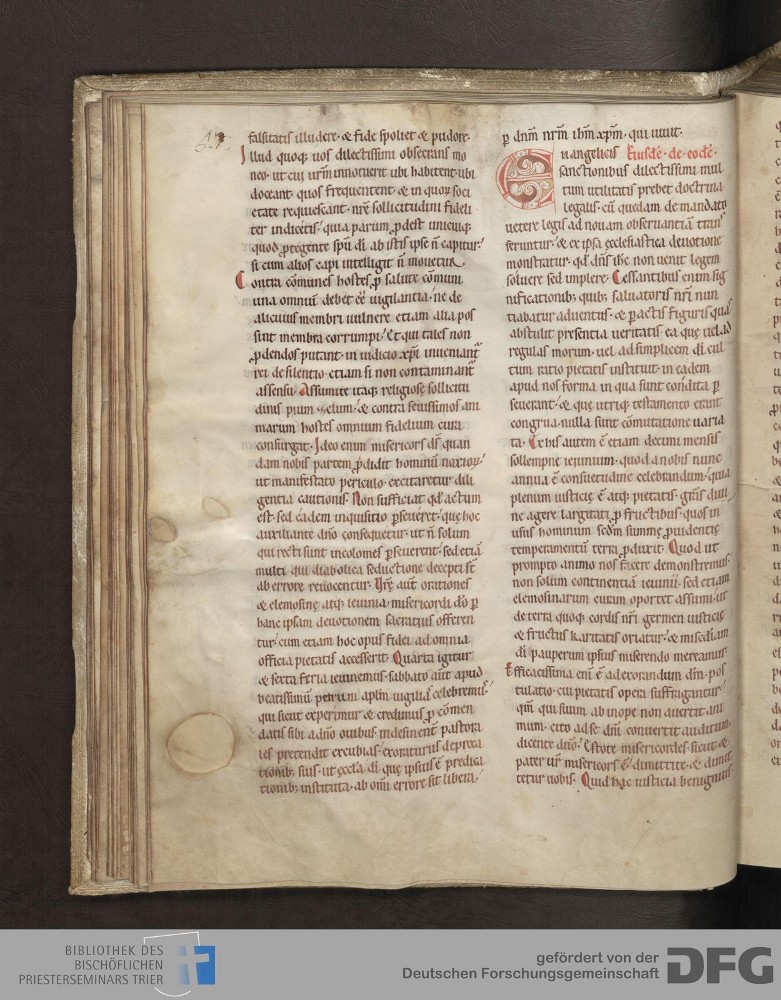 falsitatis illudere · & fide spoliet & pudore ·
Illud quoq; uos dilectissimi obsecrans mo
neo · ut cui urm̄ innotuerit ubi habitent · ubi
doceant · quos frequentent · & in quoꝝ soci
etate requiescant · nrę̄ sollicitudini fideli
ter indicetis · quia parum ꝓdest unicuiq;
quod ꝓtegente spū dī ab istis ipse n̄ capitur ·
si cum alios capi intelligit n̄ mouetur ·
Contra cōmunes hostes ꝓ salute cōmuni
una omniū debet eē uigilantia · ne de
alicuius membri uulnere etiam alia pos
sint membra corrumpi · Et qui tales non
ꝓdendos putant · in iudicio xp̄i inuenianť
rei de silentio · etiam si non contaminanť
assensu · Assumite itaq; religiosę sollicitu
dinis pium zelum · & contra seuissimos ani
marum hostes omnium fidelium cura
consurgat · Ideo enim misericors dš quan
dam nobis partem ꝓdidit hominū noxioꝝ ·
ut manifestato periculo · excitaretur dili
gentia cautionis · Non sufficiat qđ actum
est · sed eadem inquisitio ꝓseueret · quę hoc
auxiliante dn̄o consequetur · ut n̄ solum
qui recti sunt incolomes ꝑseuerent · sed etiā
multi qui diabolica seductione decepti st̄
ab errore reuocentur · Vrę̄ aut̄ orationes
& elemosinę atq; ieiunia · misericordi dō ꝑ
hanc ipsam deuotionem sacratius offeren
tur · cum etiam hoc opus fidei ad omnia
officia pietatis accesserit · Quarta igitur
& sexta feria ieiunemus · sabbato aut̄ apud
beatissimū petrum aplm̄ uigiliā celebrem᷒ ·
qui sicut experimur & credimus ꝓ cōmen
datis sibi a dn̄o ouibus indesinent̄ pastora
les pretendit excubias · exoraturus depreca
tionib; suis · ut ęccła dī quę ipsius ē predica
tionib; instituta · ab omī errore sit libera ·
ꝑ dnm̄ nrm̄ ihm̄ xp̄m · qui uiuit ·
Eiusdē · de · eodē ·
Euangelicis
sanctionibus dilectissimi mul
tum utilitatis prebet doctrina
legalis · cū quedam de mandato
uetere legis ad nouam obseruantiā trans
feruntur · & ex ipsa ęcclesiastica deuotione
monstratur · qđ dn̄s ihc non uenit legem
soluere sed implere · Cessantibus enim sig
nificationib; quib; saluatoris nrī nun
tiabatur aduentus · & ꝑactis figuris quas
abstulit presentia ueritatis · ea quę uel ad
regulas morum · uel ad simplicem dī cul
tum ratio pietatis instituit · in eadem
apud nos forma in qua sunt condita ꝑ
seuerant · & quę utriq; testamento erant
congrua · nulla sunt cōmutatione uaria
ta · Ex his autem ē etiam decimi mensis
sollempne ieiunium · quod a nobis nunc
annua ē consuetudine celebrandum · quia
plenum iusticię ē atq; pietatis · grās diui
ne agere largitati ꝓ fructibus · quos in
usus hominum scđm summę ꝓuidentię
temperamentū terra ꝓduxit · Quod ut
prompto animo nos facere demonstremus ·
non solum continentiā ieiunii · sed etiam
elemosinarum curam oportet assumi · ut
de terra quoq; cordis nrī germen iusticię
& fructus karitatis oriatur · & misc̄diam
dī pauperum ipsius miserendo mereamur ·
Efficacissima enī ē ad exorandum dm̄ · pos
tulatio · cui pietatis opera suffragantur ·
qm̄ qui suum ab inope non auertit ani
mum · cito ad se dnī conuertit auditum ·
dicente dn̄o · Estote misericordes · sicut &
pater ur̄ misericors ē · dimittite · & dimit
tetur uobis · Quid hac iusticia benignius ·
BIBLIOTHEK DES
BISCHÖFLICHEN
PRIESTERSEMINARS TRIER
gefördert von der
Deutschen Forschungsgemeinschaft
DFG